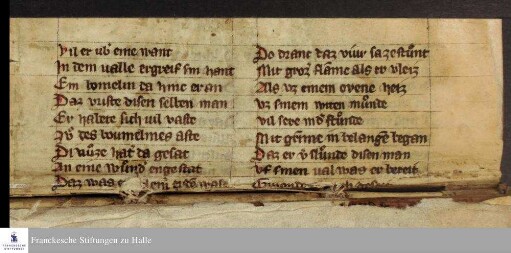 Vil er vb' eine want
In dem valle ergreif sin hant
Ein bomelin da hine er an
Daz vriste disen selben man
Er habete sich vil vaste
Iv des boumelines aste
Di vuͦze hat da gesat
In eine wͤnd enge stat
Daz was
Do dranc daz viur sa zestunt
Mit groz flāme als er vleiz
Als vz einem ovene heiz
Vz sinem witen mūnde
vil sere
Mit gerne in belangē began
Daz er v'slunde disen man
Vf sinen val was er bereit
Franckesche Stiftungen zu Halle